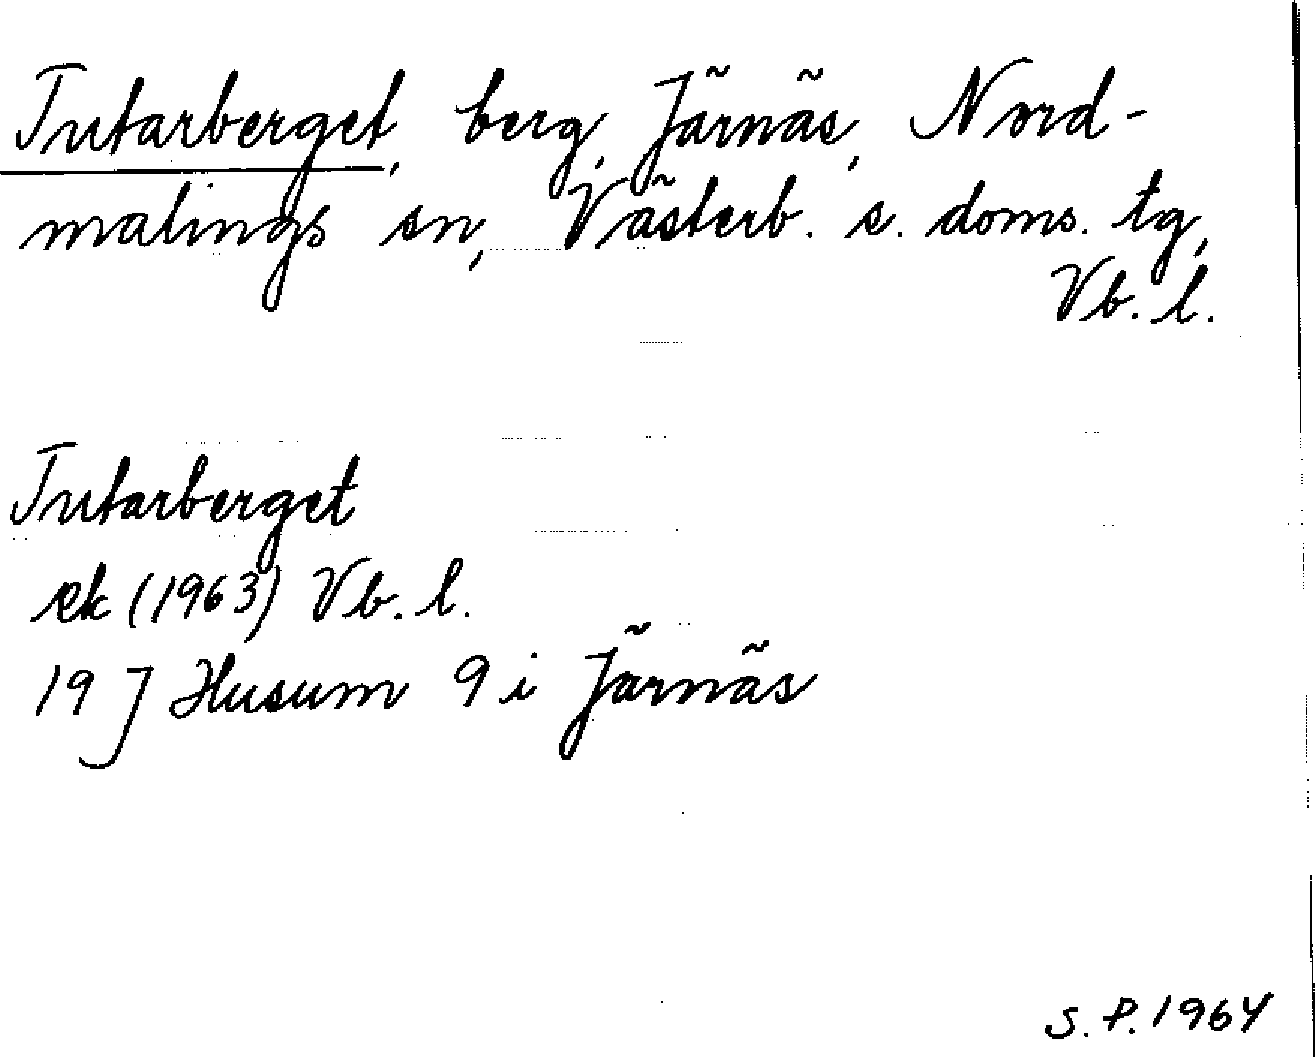 Tutarberget, berg, Järnäs, Nord-
malings sn, Västerb. s. doms. tg,
Vb. l.
Tutarberget
ek (1963) Vb. l.
19 J Husum 9 i Järnäs
S.P. 1964